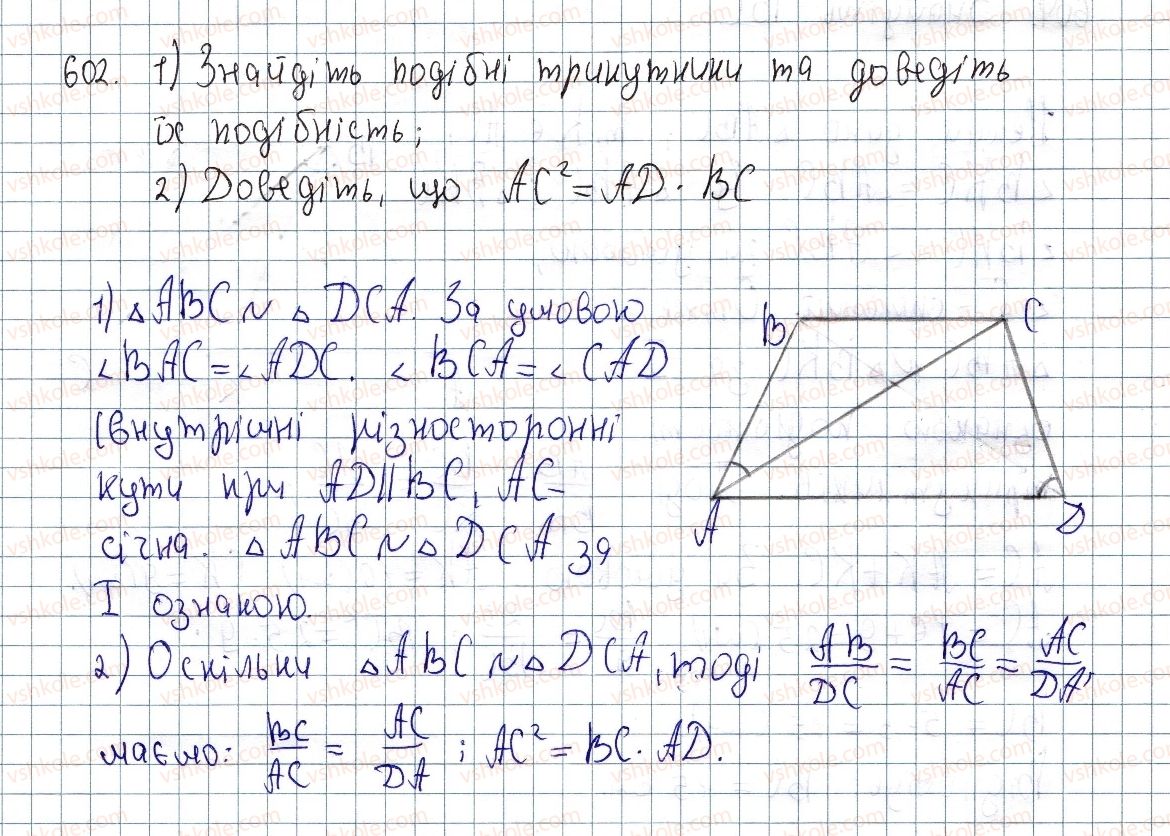 602. 1) Знайдіть подібні трикутники та доведіть
їх подібність;
2) Доведіть, що AC² = AD · BC
1) △ABC ~ △DCA. За умовою
∠BAC = ∠ADC. ∠BCA = ∠CAD
(внутрішні різносторонні
кути при AD||BC, AC –
січна. △ABC ~ △DCA за
I ознакою.
2) Оскільки △ABC ~ △DCA, тоді AB/DC = BC/AC = AC/DA,
маємо: BC/AC = AC/DA ; AC² = BC · AD.
B C
A D